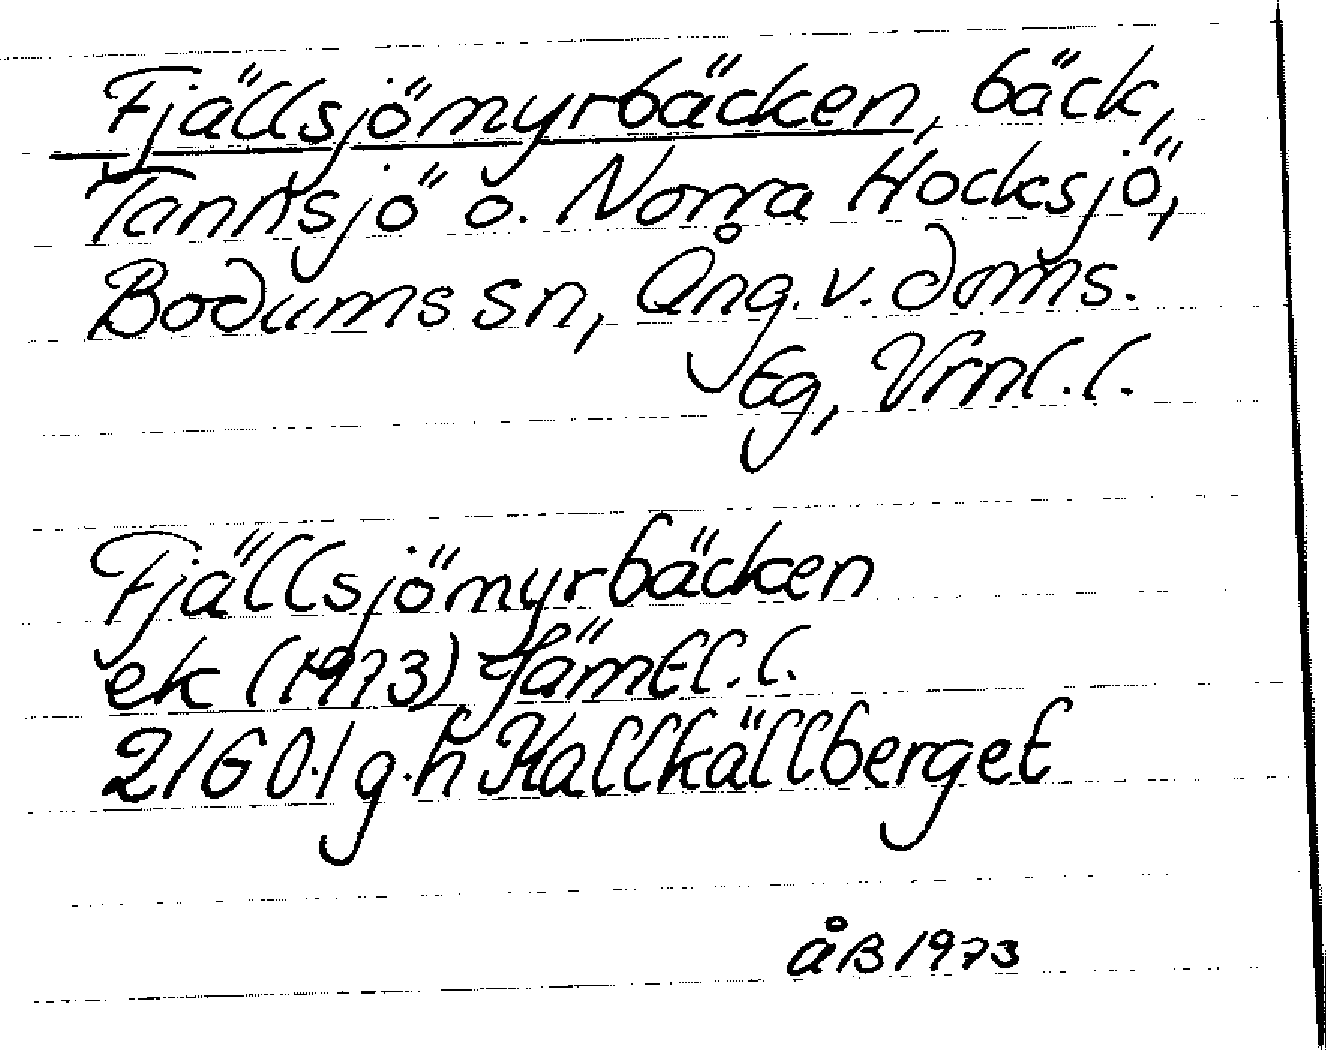 Fjällsjömyrbäcken, bäck,
Tannsjö o. Norra Hocksjö,
Bodums sn, Ång. v. doms.
Eg, Vrnl. l.
Fjällsjömyrbäcken
ek (1973) Jämtl. l.
21G 0-1 g-h Kallkällberget
åB 1973